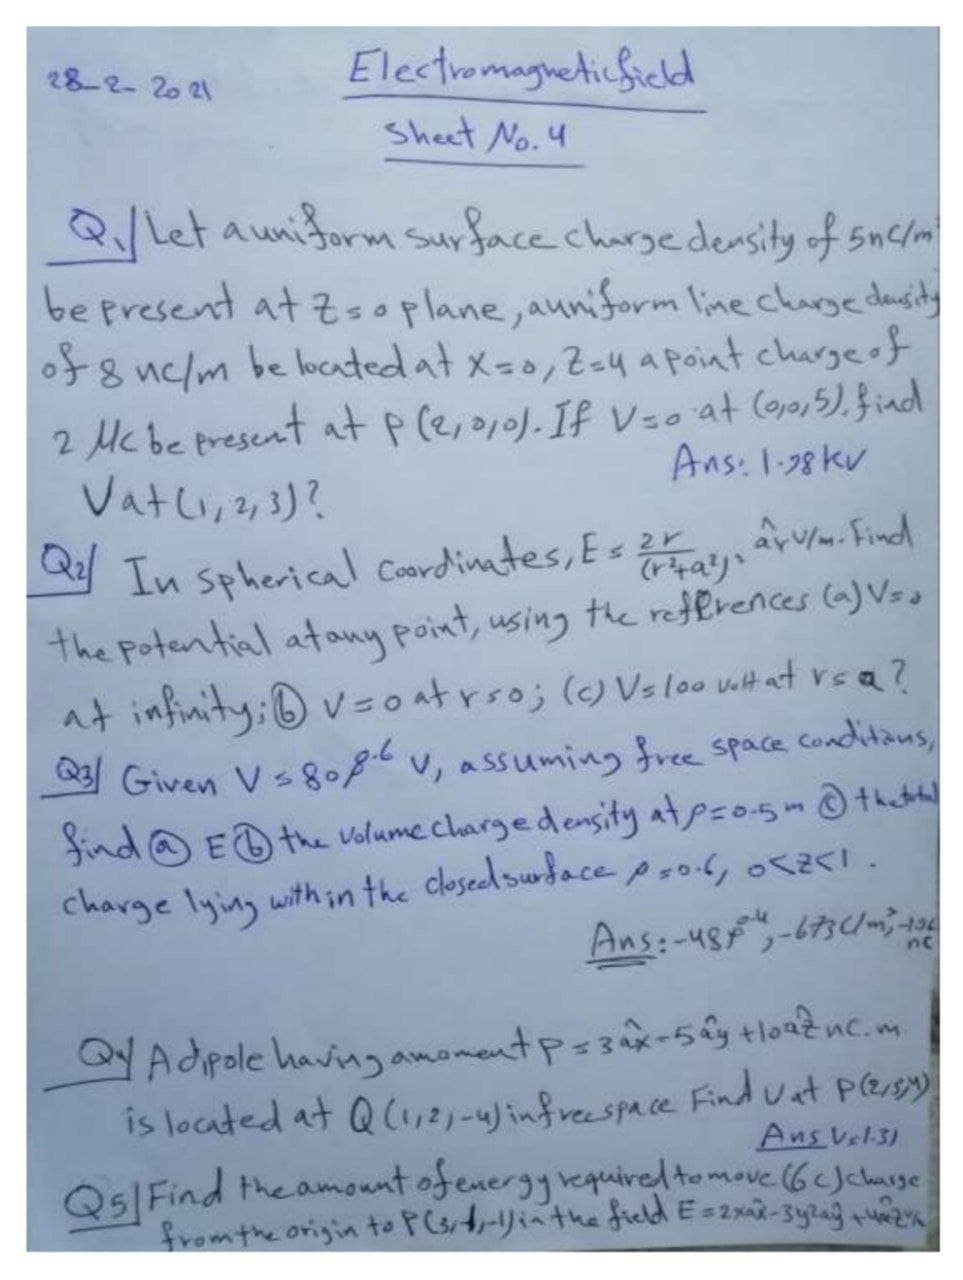 28-2-2021
Electromagnetic field
Sheet No. 4
Q1/ Let a uniform surface charge density of 5nC/m²
be present at Z=0 plane, a uniform line charge density
of 8 nc/m be located at X=0, Z=4 a point charge of
2 Mc be present at P (2,0,0). If V=0 at (0,0,5), find
V at (1, 2, 3)?
Ans: 1.98 kv
Q2/ In spherical Coordinates, E = 2r/(r²+a²)² âr V/m. Find
the potential at any point, using the refferences (a) V=0
at infinity; (b) V=0 at r=0; (c) V=100 volt at r=a?
Q3/ Given V = 80ρ^0.6 V, assuming free space conditans,
find (a) E (b) the volume charge density at ρ=0.5 m (c) the total
charge lying within the closed surface ρ=0.6, 0<Z<1.
Ans: -48ρ^-0.4, -673C/m³,
nc
Q4/ A dipole having a moment P = 3âx-5ây+10âz nC.m
is located at Q(1,2,-4) in free space Find V at P(2,3,4)
Ans V=1.31
Q5/ Find the amount of energy required to move (6 c) charge
from the origin to P(3,1,-1) in the field E = 2xâx-3y²ây+4âz V/m